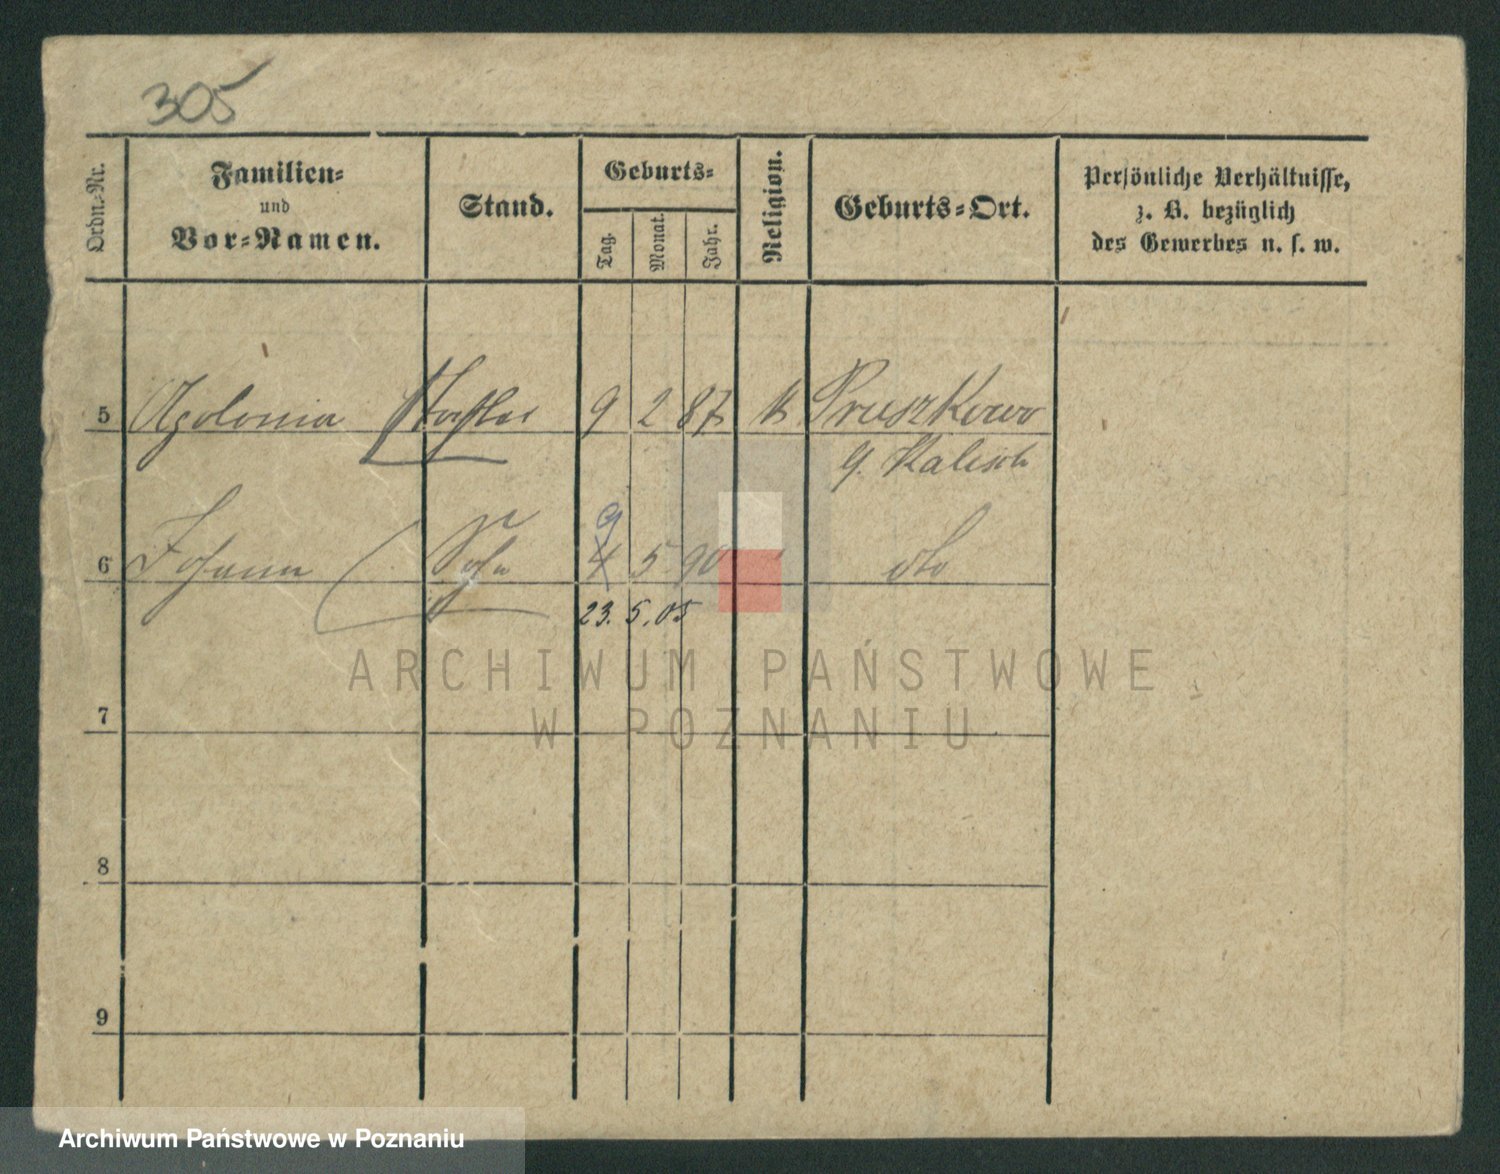 305
Ordn.-Nr.
Familien-
und
Vor-Namen.
Stand.
Geburts-
Tag.
Monat.
Jahr.
Religion.
Geburts-Ort.
Persönliche Verhältnisse,
z. B. bezüglich
des Gewerbes u. s. w.
5 Apolonia Tochter 9 2 87 k Pruszkowo
g. Kalisch
9
6 Johann Sohn 4 5 90 dto
23. 5. 05
ARCHIWUM PAŃSTWOWE
W POZNANIU
7
8
9
Archiwum Państwowe w Poznaniu